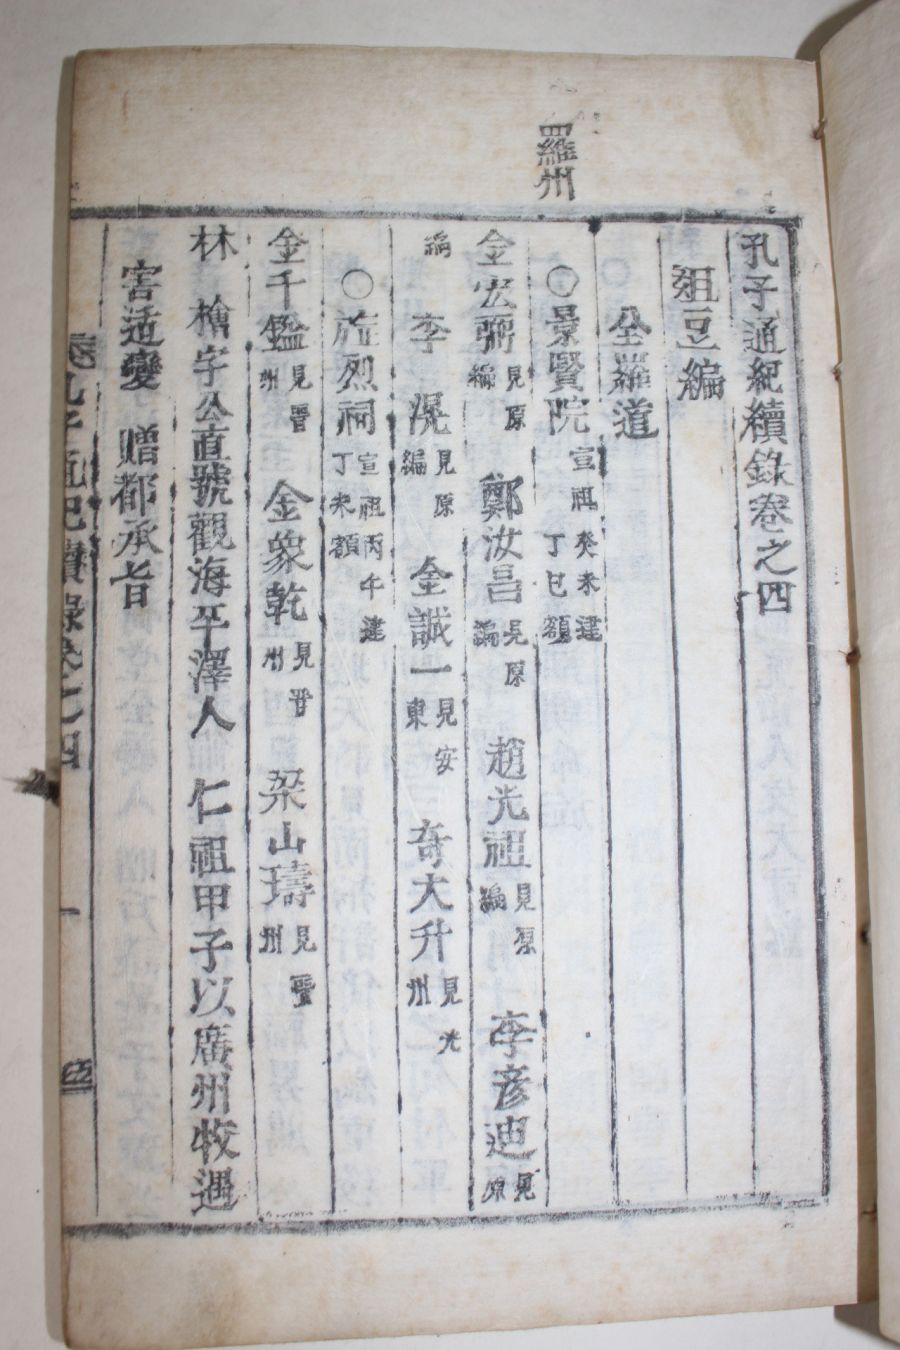 羅州
孔子通紀續錄卷之四
俎豆編
全羅道
〇景賢院 宣祖癸未建 丁巳額
金宏弼 見原編 鄭汝昌 見原編 趙光祖 見原編 李彦迪 見原
編 李滉 見原編 金誠一 見安東 奇大升 見光州
〇旌烈祠 宣祖丙午建 丁未額
金千鎰 見晉州 金象乾 見晉州 梁山璹 見晉州
林檜字公直號觀海平澤人 仁祖甲子以廣州牧遇
害适變 贈都承旨
孔子通紀續錄卷之四 一